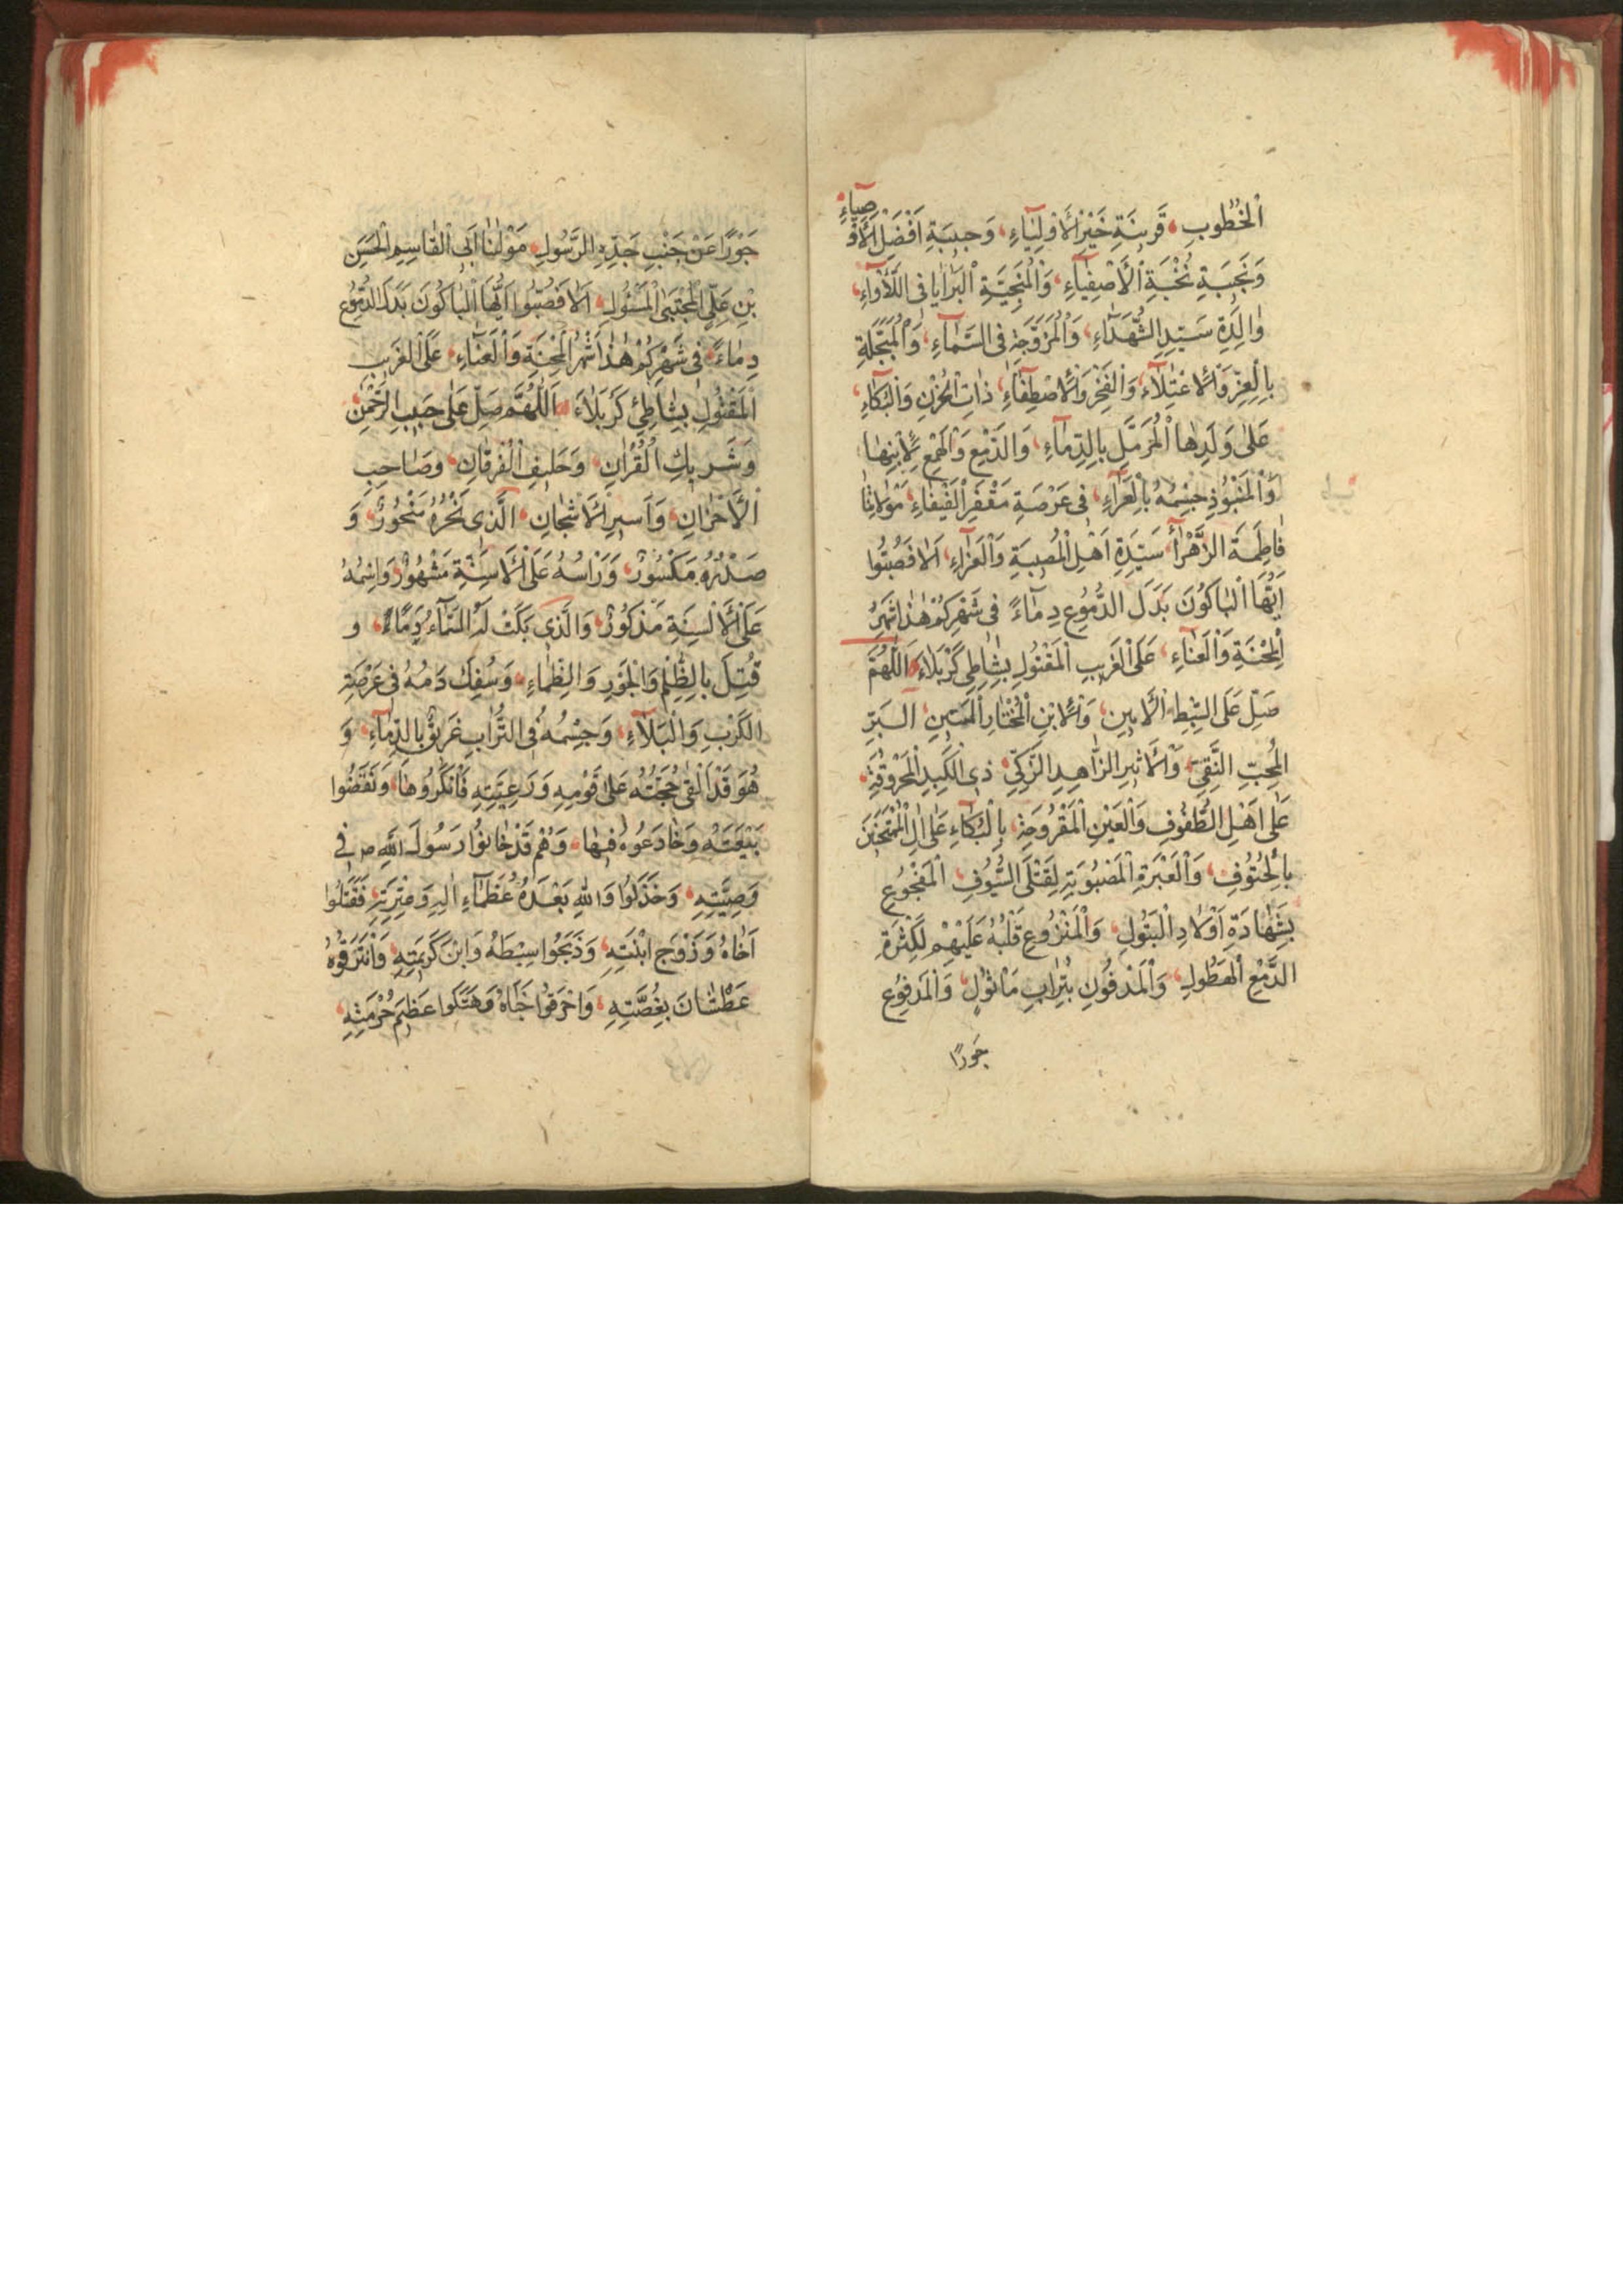 اَلْخُطُوبِ قَرينَةِ خَيْرِ الْأَوْلِيٰاءِ، وَحَبيبَةِ اَفْضَلِ الْأَوْصِيٰآءِ
وَنَجيبَةِ نُخْبَةِ الْأَصْفِيٰآءِ، وَالْمُنْجِيَةِ الْبَرٰايٰا فِى اللَّأْوٰاءِ،
وٰالِدَةِ سَيِّدِ الشُّهَدٰآءِ، وَالْمُزَوَّجَةِ فِى السَّمٰآءِ، وَالْمُبَجَّلَةِ
بِالْعِزِّ وَالْاِعْتِلٰآءِ، وَالْفَخْرِ وَالْاِصْطِفٰآءِ، ذٰاتِ الْحُزْنِ وَالْبُكٰآءِ،
عَلىٰ وَلَدِهَا الْمُرَمَّلِ بِالدِّمٰآءِ، وَالدَّمْعِ وَالْهَمْعِ لِاِبْنِهٰا
وَالْمَنْبُوذِ جِسْمُهُ بِالْعَرٰآءِ، فى عَرْصَةِ مَقْفَرِ الْفَيْفٰاءِ، مَوْلاتِنٰا
فٰاطِمَةَ الزَّهْرٰآءِ سَيِّدَةِ اَهْلِ الْمُصيبَةِ وَالْعَزٰآءِ، اَلٰا فَصُبُّوا
اَيُّهَا الْبٰاكُونَ بَدَلَ الدُّمُوعِ دِمٰآءً فى شَهْرِكُمْ هٰذٰا شَهْرُ
الْمِحْنَةِ وَالْعَنٰآءِ، عَلَى الْغَريبِ الْمَقْتُولِ بِشٰاطِى كَرْبَلٰاءَ اَللّٰهُمَّ
صَلِّ عَلَى السِّبْطِ الْأَمينِ، وَالْاِبْنِ الْمُخْتٰارِ الْمَتينِ، اَلْبَرِّ
الْمُحِبِّ النَّقِيِّ وَالْأَثيرِ الزّٰاهِدِ الزَّكِيِّ، ذِى الْكَبِدِ الْمَحْرُوقَةِ،
عَلىٰ اَهْلِ الطُّفُوفِ وَالْعَيْنِ الْمَقْرُوحَةِ، بِالْبُكٰآءِ عَلىٰ اٰلِ الْمُمْتَحَنينَ
بِالْحُتُوفِ، وَالْعَبْرَةِ الْمَصْبُوبَةِ لِقَتْلَى السُّيُوفِ الْمَفْجُوعِ
بِشَهٰادَةِ اَوْلٰادِ الْبَتُولِ، وَالْمَنْزُوعِ قَلْبُهُ عَلَيْهِمْ لِكَثْرَةِ
الدَّمْعِ الْهَطُولِ، وَالْمَدْفُونِ بِتُرٰابِ مَأْثُولٍ، وَالْمَدْفُوعِ
جَورًا
جَوْرًا عَنْ جَنْبِ جَدِّهِ الرَّسُولِ، مَوْلٰنٰا اَبِى الْقٰاسِمِ الْحَسَنِ
بْنِ عَلِيٍّ الْمُجْتَبَى الْمَسْئُولِ، اَلٰا فَصُبُّوا اَيُّهَا الْبٰاكُونَ بَدَلَ الدُّمُوعِ
دِمٰاءً، فى شَهْرِكُمْ هٰذٰا شَهْرُ الْمِحْنَةِ وَالْعَنٰآءِ، عَلَى الْغَريبِ
الْمَقْتُولِ بِشٰاطِئِ كَرْبَلٰاءَ اَللّٰهُمَّ صَلِّ عَلىٰ حَبيبِ الرَّحْمٰنِ،
وَشَريكِ الْقُرْاٰنِ، وَحَليفِ الْفُرْقٰانِ، وَصٰاحِبِ
الْأَحْزٰانِ، وَاَسيرِ الْأَشْجٰانِ، اَلَّذى نَحْرُهُ مَنْحُورٌ، وَ
صَدْرُهُ مَكْسُورٌ، وَرَاْسُهُ عَلَى الْأَسِنَّةِ مَشْهُورٌ، وَاسْمُهُ
عَلَى الْأَلْسِنَةِ مَذْكُورٌ، وَالَّذى بَكَتْ لَهُ السَّمٰآءُ دِمٰآءً، وَ
قُتِلَ بِالظُّلْمِ وَالْجَوْرِ وَالظَّمٰاءِ، وَسُفِكَ دَمُهُ فى عَرْصَةِ
الْكَرْبِ وَالْبَلٰآءِ، وَجِسْمُهُ فِى التُّرٰابِ غَريقٌ بِالدِّمٰآءِ، وَ
هُوَ قَدْ اَلْقىٰ حُجَّتَهُ عَلىٰ قَوْمِهِ وَرَعِيَّتِهِ فَاَنْكَرُوهٰا، وَنَقَضُوا
بَيْعَتَهُ وَخٰادَعُوهُ فيهٰا، وَهُمْ قَدْ خٰانُوا رَسُولَ اللّٰهِ ص فى
وَصِيَّتِهِ، وَخَذَلُوا وَاللّٰهِ بَعْدَهُ عُظَمٰآءَ اٰلِهِ وَعِتْرَتِهِ، فَقَتَلُوا
اَخٰاهُ وَزَوْجَ ابْنَتِهِ، وَذَبَحُوا سِبْطَهُ وَابْنَ كَريمَتِهِ،
عَطْشٰانَ بِغُصَّتِهِ، وَاحْرَقُوا خِبٰاهُ وَهَتَكُوا عَظيمَ حُرْمَتِهِ،